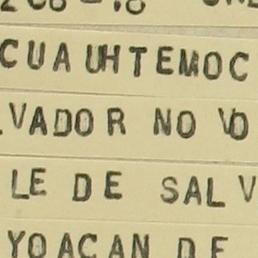 CUAUHTEMOC
LVADOR NO VO
LE DE SALV
YOACAN DE